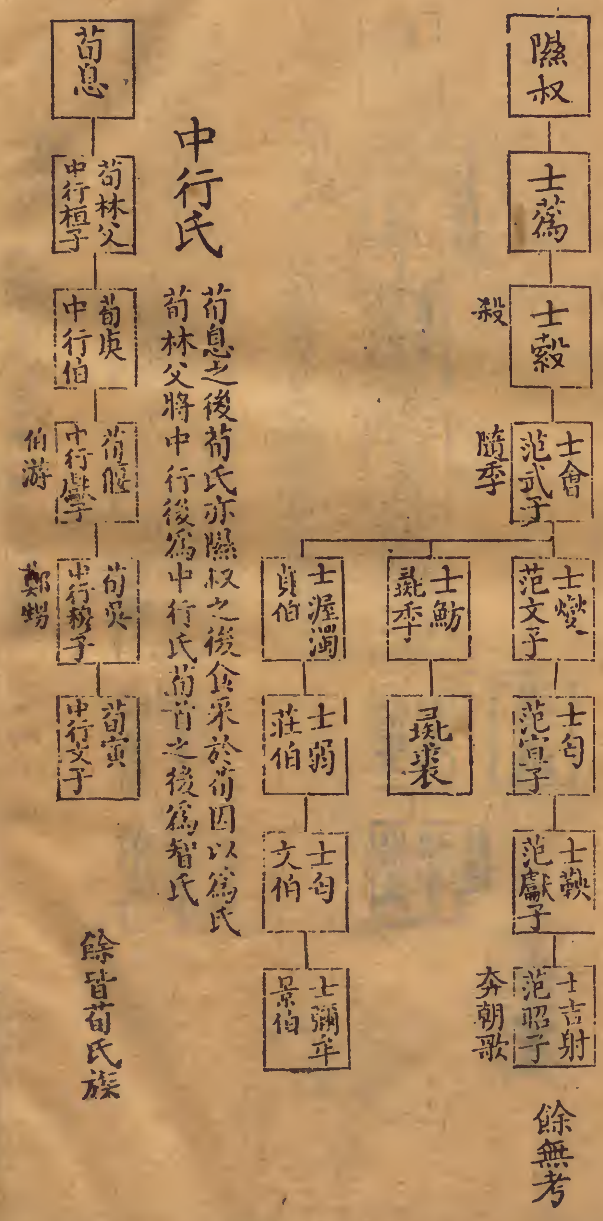 隰叔
士蒍
士縠
殺
士會
范武子
隨季
士燮
范文子
士匄
范宣子
士鞅
范獻子
士吉射
范昭子
奔朝歌
餘無考
士魴
彘季
彘裘
士渥濁
貞伯
士弱
莊伯
士匄
文伯
士彌牟
景伯
中行氏
荀息之後荀氏亦隰叔之後食采於荀因以爲氏
荀林父將中行後爲中行氏荀首之後爲智氏
荀息
荀林父
中行桓子
荀庚
中行伯
荀偃
中行獻子
伯游
荀吳
中行穆子
鄭甥
荀寅
中行文子
餘皆荀氏族